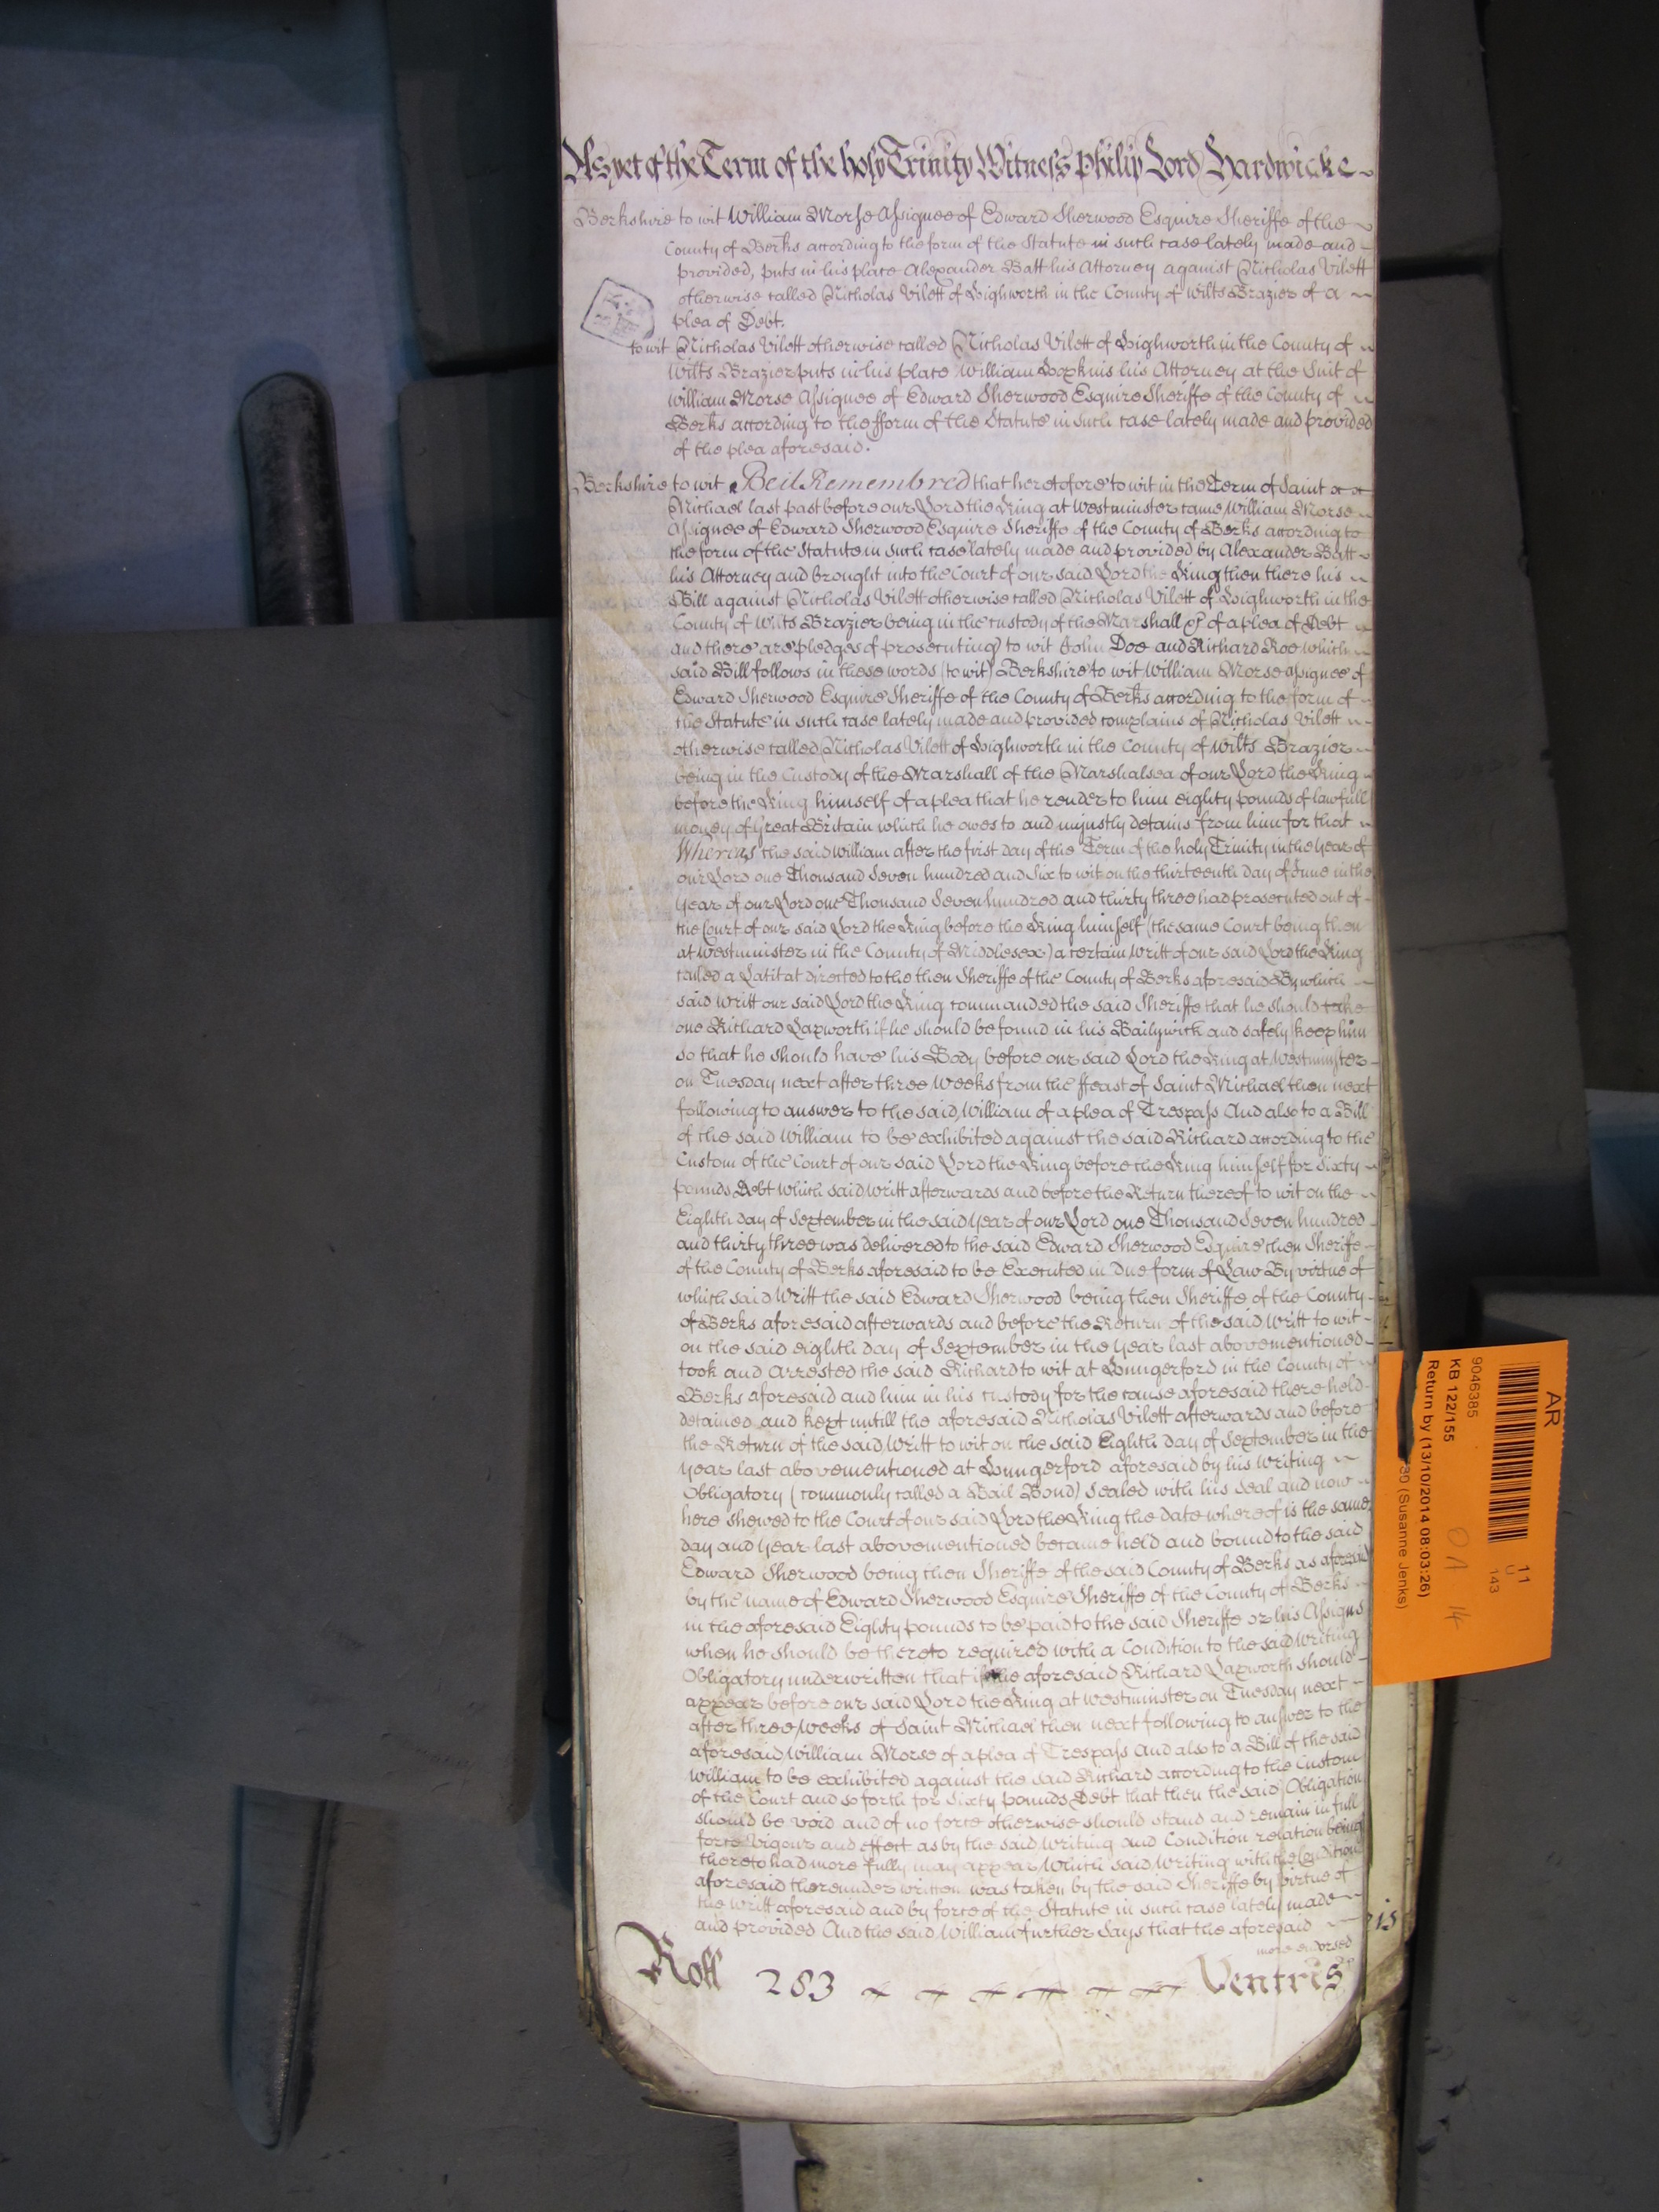 As yet of the Term of the holy Trinity Witness Philip Lord Hardwicke
Berkshire to wit William Morse Assignee of Edward Sherwood Esquire Sheriffe of the
County of Berks according to the form of the Statute in such case lately made and
provided, puts in his place Alexander Batt his Attorney against Nicholas Vilett
otherwise called Nicholas Vilett of Highworth in the County of Wilts Brazier of a
plea of Debt.
to wit Nicholas Vilett otherwise called Nicholas Vilett of Highworth in the County of
Wilts Brazier puts in his place William Hopkins his Attorney at the Suit of
William Morse Assignee of Edward Sherwood Esquire Sheriffe of the County of
Berks according to the fform of the Statute in such case lately made and provided
of the plea aforesaid.
Berkshire to wit Be it Remembred that heretofore to wit in the Term of Saint
Michael last past before our Lord the King at Westminster came William Morse
Assignee of Edward Sherwood Esquire Sheriffe of the County of Berks according to
the form of the Statute in such case lately made and provided by Alexander Batt
his Attorney and brought into the Court of our said Lord the King then there his
Bill against Nicholas Vilett otherwise called Nicholas Vilett of Highworth in the
County of Wilts Brazier being in the custody of the Marshall &c of a plea of Debt
and there are pledges of prosecuting to wit John Doe and Richard Roe which
said Bill follows in these words (to wit) Berkshire to wit William Morse Assignee of
Edward Sherwood Esquire Sheriffe of the County of Berks according to the form of
the Statute in such case lately made and provided complains of Nicholas Vilett
otherwise called Nicholas Vilett of Highworth in the County of Wilts Brazier
being in the Custody of the Marshall of the Marshalsea of our Lord the King
before the King himself of a plea that he render to him eighty pounds of lawfull
money of Great Britain which he owes to and unjustly detains from him for that
Whereas the said William after the first day of the Term of the holy Trinity in the Year of
our Lord one Thousand Seven hundred and Six to wit on the thirteenth day of June in the
Year of our Lord one Thousand Seven hundred and thirty three had prosecuted out of
the Court of our said Lord the King before the King himself (the same Court being then
at Westminster in the County of Middlesex) a certain Writt of our said Lord the King
called a Latitat directed to the then Sheriffe of the County of Berks aforesaid By which
said Writt our said Lord the King commanded the said Sheriffe that he should take
one Richard Lapworth if he should be found in his Bailywick and safely keep him
so that he should have his Body before our said Lord the King at Westminster
on Tuesday next after three Weeks from the ffeast of Saint Michael then next
following to answer to the said William of a plea of Trespass And also to a Bill
of the said William to be exhibited against the said Richard according to the
Custom of the Court of our said Lord the King before the King himself for Sixty
pounds Debt Which said Writt afterwards and before the Return thereof to wit on the
Eighth day of September in the said Year of our Lord one Thousand Seven hundred
and thirty three was delivered to the said Edward Sherwood Esquire then Sheriffe
of the County of Berks aforesaid to be Executed in due form of Law By virtue of
which said Writt the said Edward Sherwood being then Sheriffe of the County
of Berks aforesaid afterwards and before the Return of the said Writt to wit
on the said eighth day of September in the Year last abovementioned
took and Arrested the said Richard to wit at Hungerford in the County of
Berks aforesaid and him in his custody for the cause aforesaid there held
detained and kept untill the aforesaid Nicholas Vilett afterwards and before
the Return of the said Writt to wit on the said Eighth day of September in the
Year last abovementioned at Hungerford aforesaid by his Writing
Obligatory (commonly called a Bail Bond) Sealed with his Seal and now
here shewed to the Court of our said Lord the King the date whereof is the same
day and Year last abovementioned became held and bound to the said
Edward Sherwood being then Sheriffe of the said County of Berks as aforesaid
by the name of Edward Sherwood Esquire Sheriffe of the County of Berks
in the aforesaid Eighty pounds to be paid to the said Sheriffe or his Assigns
when he should be thereto required with a Condition to the said Writing
Obligatory underwritten that if the aforesaid Richard Lapworth should
appear before our said Lord the King at Westminster on Tuesday next
after three Weeks of Saint Michael then next following to answer to the
aforesaid William Morse of a plea of Trespass And also to a Bill of the said
William to be exhibited against the said Richard according to the Custom
of the Court and so forth for Sixty pounds Debt that then the said Obligation
should be void and of no force otherwise should stand and remain in full
force Vigour and effect as by the said Writing and Condition relation being
thereto had more fully may appear Which said Writing with the Condition
aforesaid thereunder written was taken by the said Sheriffe by virtue of
the Writt aforesaid and by force of the Statute in such case lately made
and provided And the said William further says that the aforesaid
more endorsed
Roll 283 Ventris
AR
11
143
9046385
KB 122/155
Return by (13/10/2014 08:03:26)
(Susanne Jenks)